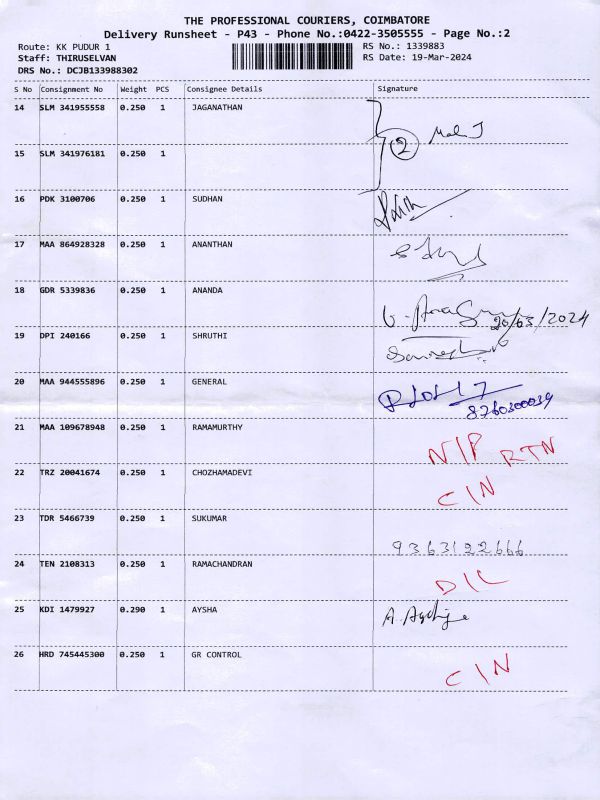 THE PROFESSIONAL COURIERS, COIMBATORE
Delivery Runsheet - P43 - Phone No.:0422-3505555 - Page No.:2
Route: KK PUDUR 1 RS No.: 1339883
Staff: THIRUSELVAN RS Date: 19-Mar-2024
DRS No.: DCJB133988302
S No Consignment No Weight PCS Consignee Details Signature
14 SLM 341955558 0.250 1 JAGANATHAN
2
15 SLM 341976181 0.250 1
16 PDK 3100706 0.250 1 SUDHAN
17 MAA 864928328 0.250 1 ANANTHAN
18 GDR 5339836 0.250 1 ANANDA
20/03/2024
19 DPI 240166 0.250 1 SHRUTHI
20 MAA 944555896 0.250 1 GENERAL
8760300039
21 MAA 109678948 0.250 1 RAMAMURTHY
N/P RTN
22 TRZ 20041674 0.250 1 CHOZHAMADEVI
C/N
23 TDR 5466739 0.250 1 SUKUMAR
9363122666
24 TEN 2108313 0.250 1 RAMACHANDRAN
D/L
25 KDI 1479927 0.290 1 AYSHA
26 HRD 745445300 0.250 1 GR CONTROL
C/N